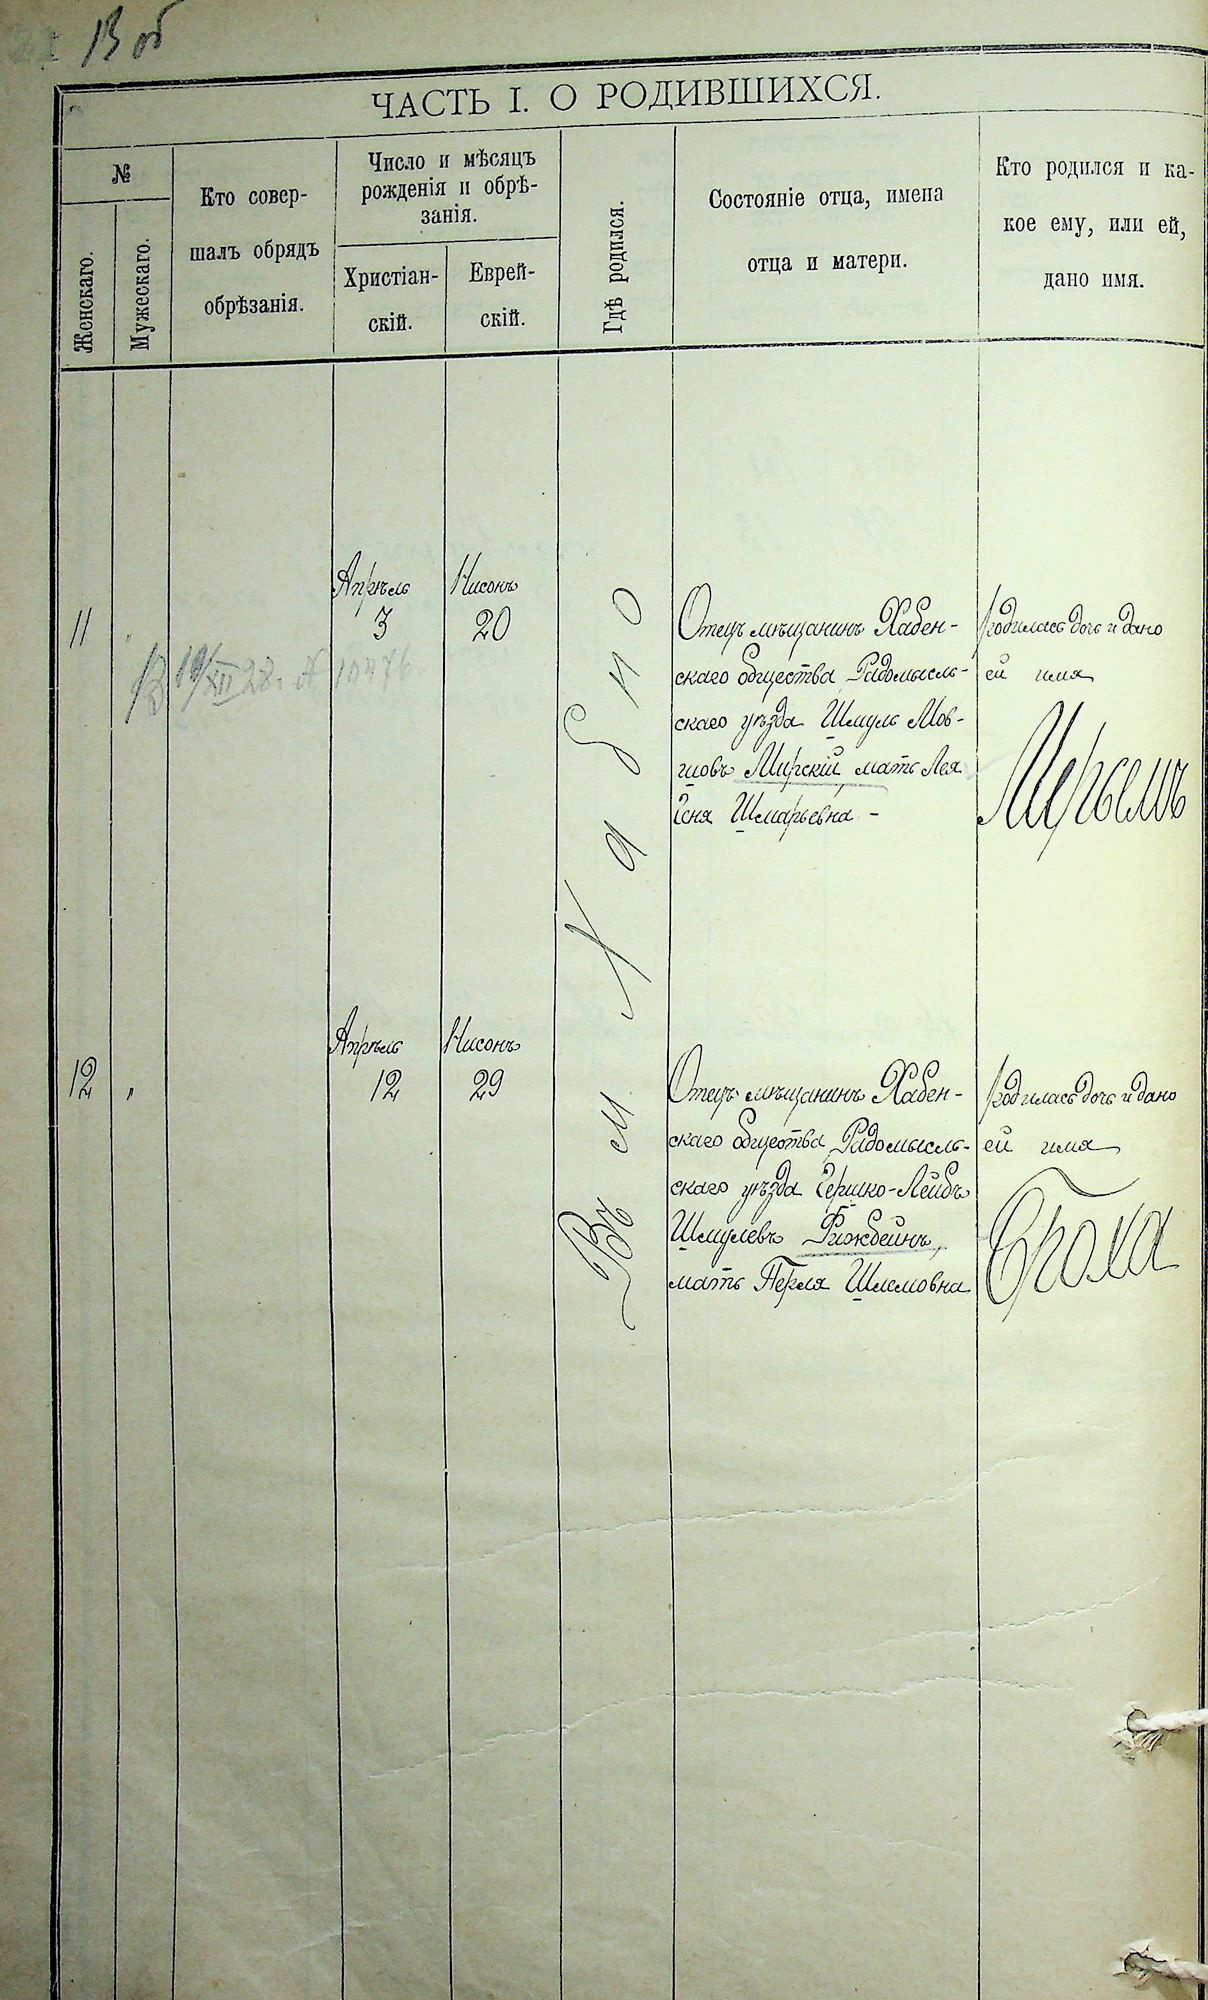 13 об
ЧАСТЬ I. О РОДИВШИХСЯ.
№
Женскаго.
Мужескаго.
Кто совер-
шалъ обрядъ
обрѣзанія.
Число и мѣсяцъ
рожденія и обрѣ-
занія.
Христіан-
скій.
Еврей-
скій.
Гдѣ родился.
Состояніе отца, имена
отца и матери.
Кто родился и ка-
кое ему, или ей,
дано имя.
Въ м. Хабно
11
Апрѣль
3
Нисонъ
20
Отецъ мѣщанинъ Хабен-
скаго общества, Радомысль-
скаго уѣзда Шмуль Мов-
шовъ Мирскій, мать Лея
Шмарьевна -
родилась дочь и дано
ей имя
Мерьемъ
18/XII 28. № 10476
12
"
Апрѣль
12
Нисонъ
29
Отецъ мѣщанинъ Хабен-
скаго общества, Радомысль-
скаго уѣзда Гершко-Лейбъ
Шмулевъ Фижбейнъ,
мать Перля Шлемовна
родилась дочь и дано
ей имя
Броха